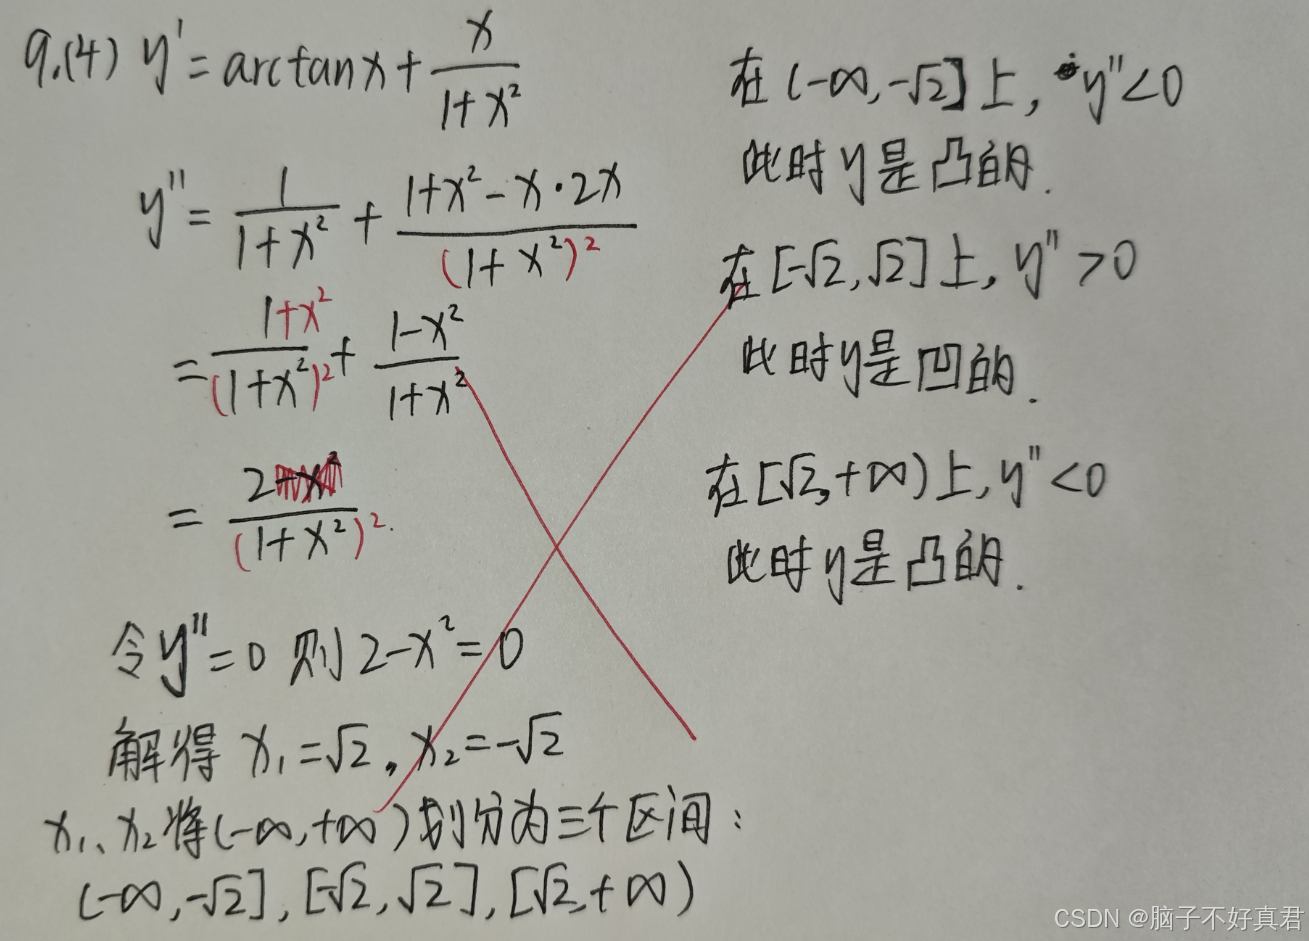 9.(4) y' = arctanx + x/(1+x²)
y'' = 1/(1+x²) + (1+x²-x·2x)/(1+x²)²
= (1+x²)/(1+x²)² + (1-x²)/(1+x²)
= 2/(1+x²)².
令y''=0 则 2-x²=0
解得 x₁=√2, x₂=-√2
x₁、x₂将(-∞,+∞)划分为三个区间:
(-∞,-√2], [-√2,√2], [√2,+∞)
在 (-∞,-√2]上, y''<0
此时y是凸的.
在[-√2,√2]上, y''>0
此时y是凹的.
在[√2,+∞)上, y''<0
此时y是凸的.
CSDN @脑子不好真君